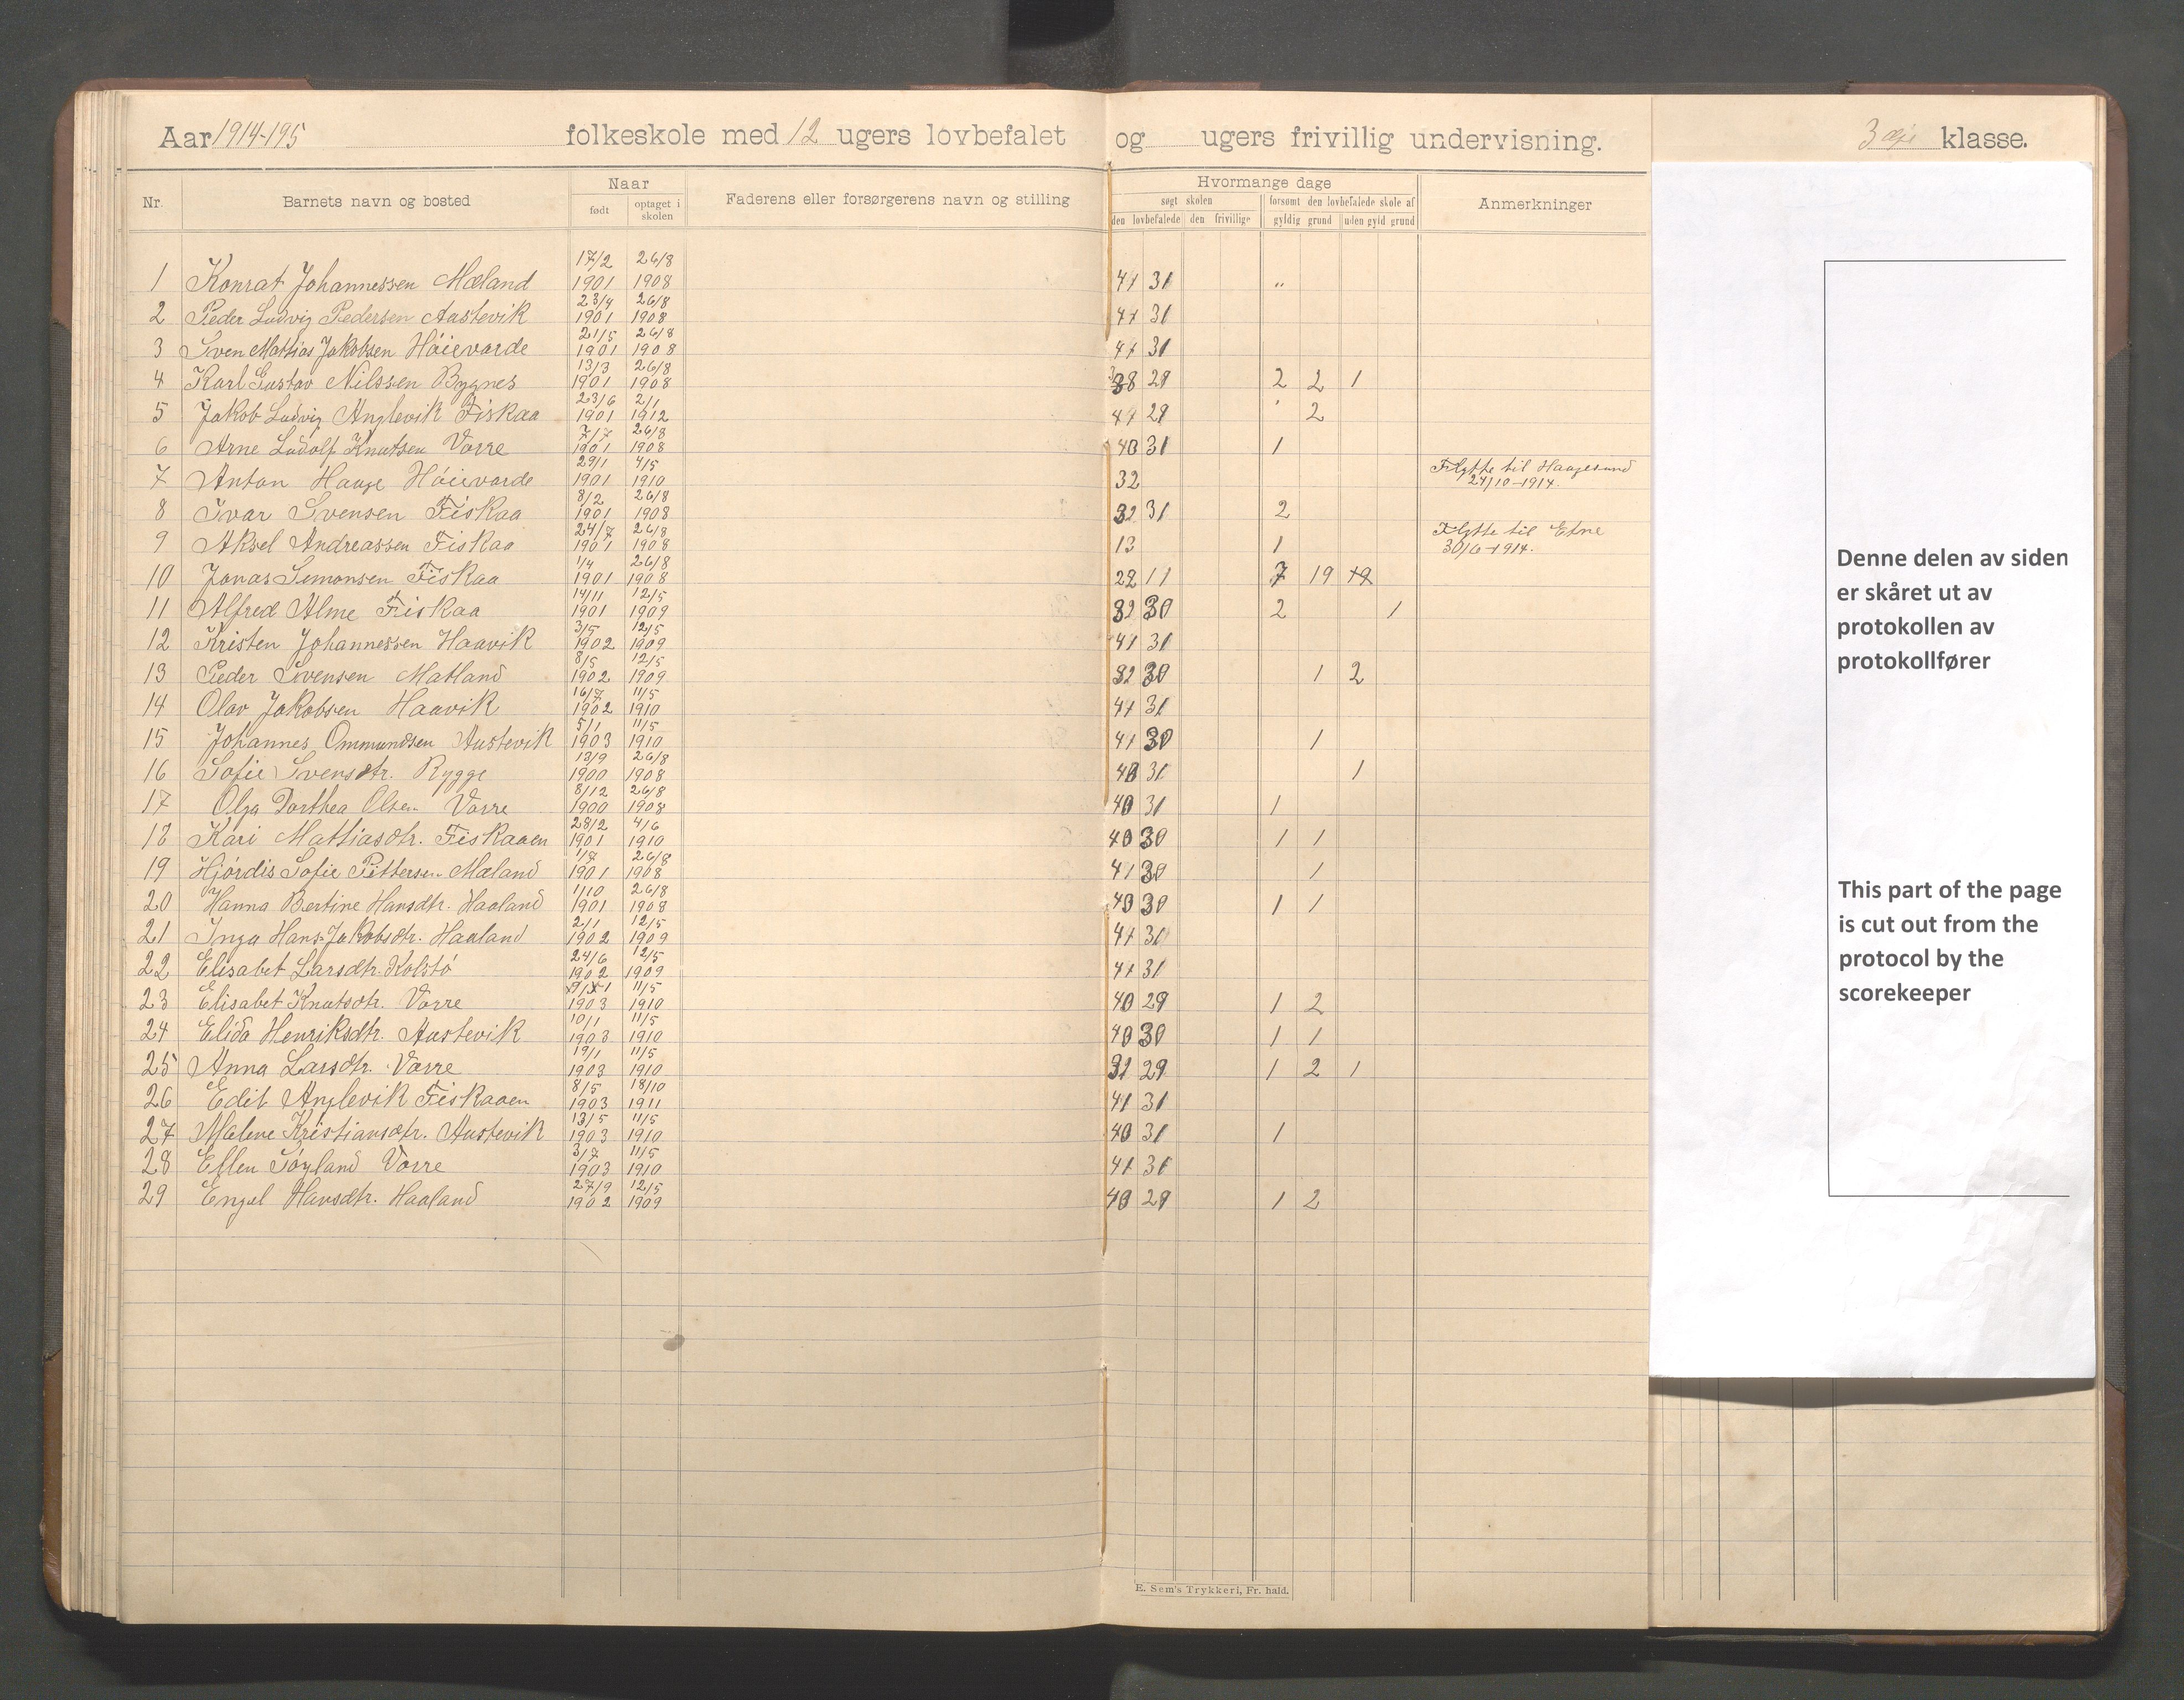 Aar 1914-195 folkeskole med 12 ugers lovbefalet og ugers frivillig undervisning. 3 klasse.
Nr. Barnets navn og bosted Naar født optaget i skolen Faderens eller forsørgerens navn og stilling Hvormange dage søgt skolen den lovbefalede den frivillige forsømt den lovbefalede skole af gyldig grund uden gyld grund Anmerkninger
17/2 26/8
1 Konrat Johannessen Mæland 1901 1908 41 31 "
23/4 26/8
2 Peder Ludvig Pedersen Austevik 1901 1908 41 31
21/5 26/8
3 Sven Mattias Jakobsen Höievarde 1901 1908 41 31
13/3 26/8
4 Karl Gustav Nilssen Bygnes 1901 1908 38 28 2 2 1
23/6 2/1
5 Jakob Ludvig Anglevik Fiskaa 1901 1912 41 29 2
7/7 26/8
6 Arne Ludolf Knutsen Vorre 1901 1908 40 31 1
29/1 4/5
7 Anton Hauge Höievarde 1901 1910 32 Flytte til Haugesund
24/10-1914.
8/2 26/8
8 Ivar Svensen Fiskaa 1901 1908 32 31 2
24/7 26/8
9 Aksel Andreassen Fiskaa 1901 1908 13 1 Flytte til Etne
30/6-1914.
1/4 26/8
10 Jonas Semonsen Fiskaa 1901 1908 22 11 7 19 12
14/11 12/5
11 Alfred Alme Fiskaa 1901 1909 32 30 2 1
3/5 12/5
12 Kristen Johannessen Haavik 1902 1909 41 31
8/5 12/5
13 Peder Svensen Matland 1902 1909 32 30 1 2
16/7 11/5
14 Olav Jakobsen Haavik 1902 1910 41 31
5/1 11/5
15 Johannes Ommundsen Austevik 1903 1910 41 30 1
13/9 26/8
16 Sofie Svensdtr. Rygge 1900 1908 40 31 1
8/12 26/8
17 Olga Dorthea Olsen Vorre 1900 1908 40 31 1
28/2 4/6
18 Kari Mattiasdtr. Fiskaaen 1901 1910 40 30 1 1
1/7 26/8
19 Hjördis Sofie Pittersen Mæland 1901 1908 41 30 1
1/10 26/8
20 Hanna Bertine Hansdtr. Haaland 1901 1908 40 30 1 1
2/1 12/5
21 Inga Hans-Jakobsdtr. Haaland 1902 1909 41 31
24/6 12/5
22 Elisabet Larsdtr. Kolstö 1902 1909 41 31
11/5
23 Elisabet Knutsdtr. Vorre 1903 1910 40 29 1 2
10/1 11/5
24 Elida Henriksdtr. Austevik 1903 1910 40 30 1 1
19/1 11/5
25 Anna Larsdtr. Vorre 1903 1910 31 29 1 2 1
8/5 18/10
26 Edit Anglevik Fiskaaen 1903 1911 41 31
13/5 11/5
27 Malene Kristiansdtr. Austevik 1903 1910 40 31 1
3/7 11/5
28 Ellen Söyland Vorre 1903 1910 41 31
27/9 12/5
29 Engel Hansdtr. Haaland 1902 1909 40 29 1 2
E. Sem's Trykkeri, Fr. hald.
Denne delen av siden
er skåret ut av
protokollen av
protokollfører
This part of the page
is cut out from the
protocol by the
scorekeeper